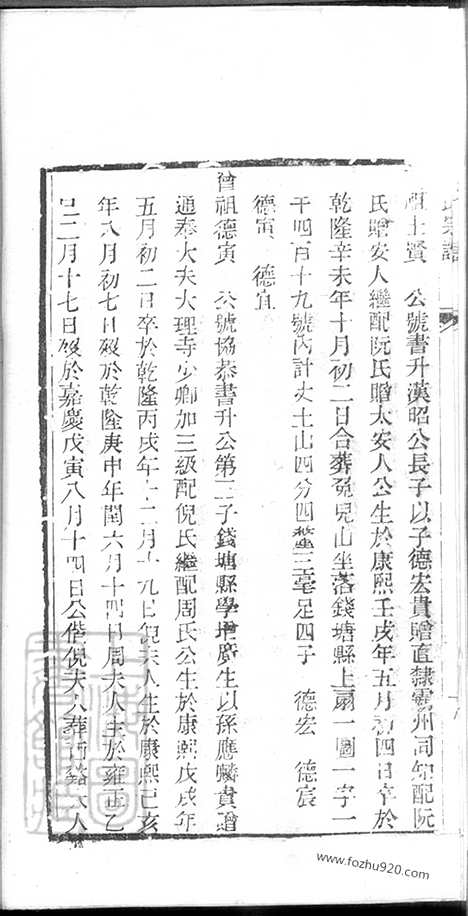 氏宗譜
祖士賢 公號書升漢昭公長子以子德宏貴贈直隸霸州同知配阮
氏贈安人繼配阮氏贈太安人公生於康熙壬戌年五月初四日卒於
乾隆辛未年十月初二日合葬兔兒山坐落錢塘縣上扇一圖一字一
千四百十九號內計丈土山四分四釐三毫足四子 德宏 德宸
德寅 德宜
曾祖德寅 公號協恭書升公第三子錢塘縣學增廣生以孫應麟貴贈
通奉大夫大理寺少卿加三級配倪氏繼配周氏公生於康熙戊戌年
五月初二日卒於乾隆丙戌年十二月十九日倪夫人生於康熙己亥
年八月初七日歿於乾隆庚申年閏六月十四日周夫人生於雍正乙
巳二月十七日歿於嘉慶戊寅八月十四日公偕倪夫人葬 夫人
www.fozhu920.com